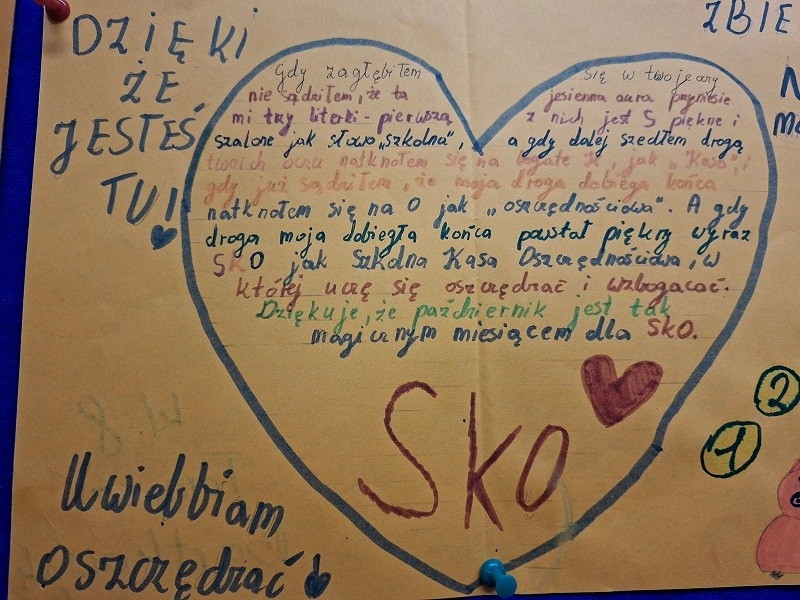 DZIĘKI
ŻE
JESTEŚ
TU!
ZBIE
Gdy zagłębiłem się w twojej
nie sądziłem, że ta jesienna aura przyniesie
mi trzy literki - pierwszą z nich jest S piękne i
szalone jak słowo „szkolna", a gdy dalej szedłem drogą
twoich oczu natknołem się na bogate K, jak „Kasa", i
gdy już sądziłem, że moja droga dobiega końca
natknołem się na O jak „oszczędnościowa". A gdy
droga moja dobiegła końca powstał piękny wyraz
SKO jak Szkolna Kasa Oszczędnościowa, w
której uczę się oszczędzać i wzbogacać.
Dziękuje, że październik jest tak
magicznym miesiącem dla SKO.
SKO
Uwielbiam
oszczędzać
1
2
kl. 8